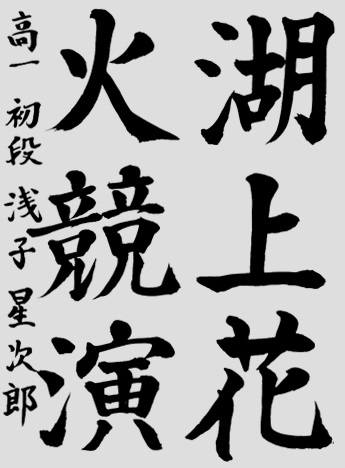 湖上花
火競演
高一 初段 浅子 星次郎